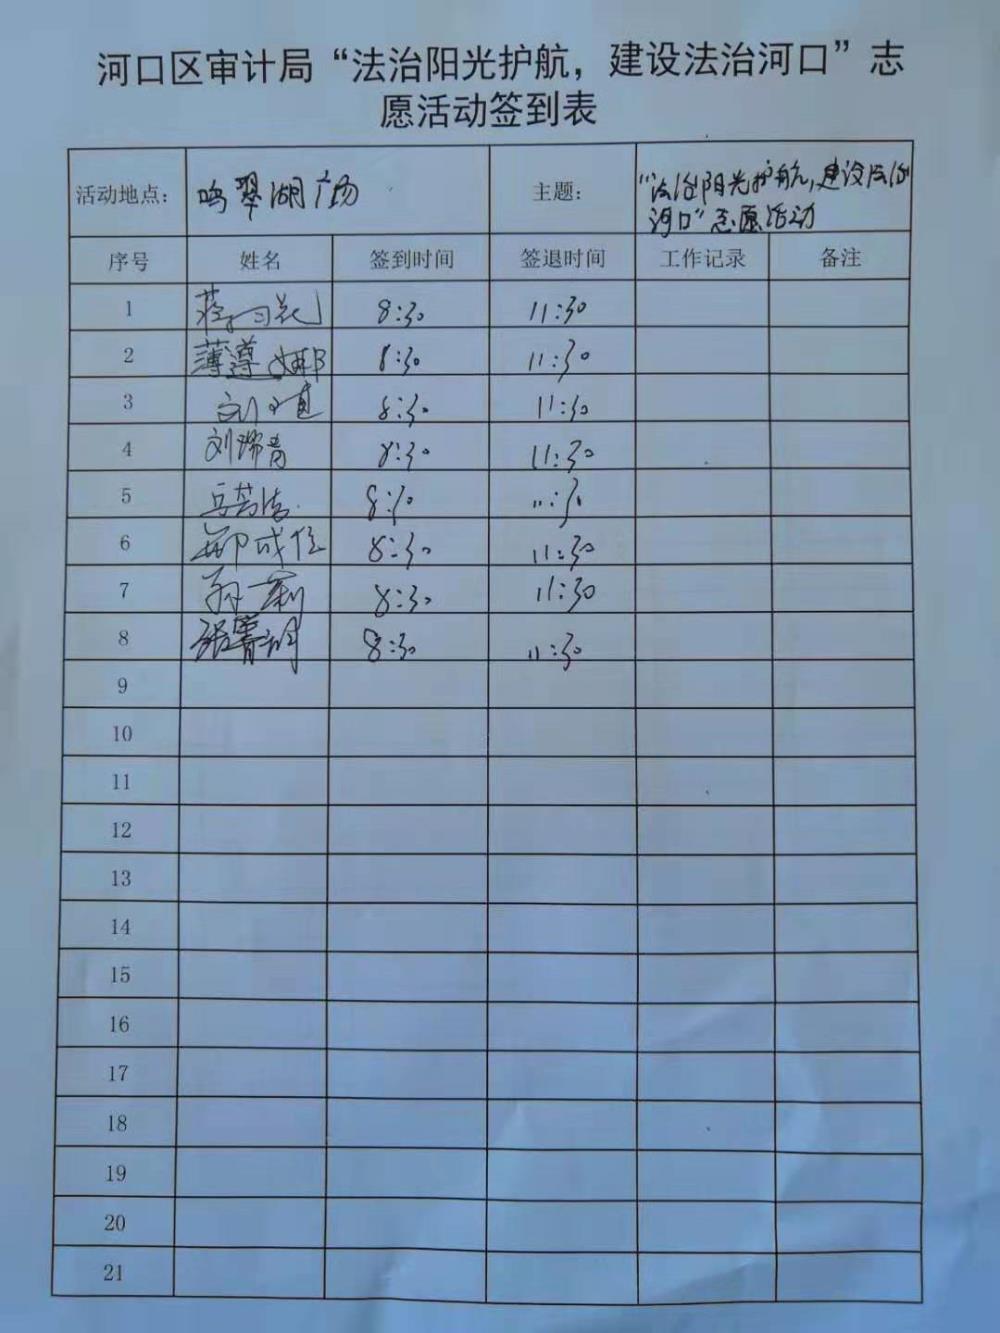 河口区审计局“法治阳光护航，建设法治河口”志
愿活动签到表
活动地点： 鸣翠湖广场 主题： “法治阳光护航,建设法治
河口”志愿活动
序号 姓名 签到时间 签退时间 工作记录 备注
1 8:30 11:30
2 薄遵娜 8:30 11:30
3 刘 8:30 11:30
4 刘瑞青 8:30 11:30
5 8:30 11:30
6 成信 8:30 11:30
7 8:30 11:30
8 张 8:30 11:30
9
10
11
12
13
14
15
16
17
18
19
20
21